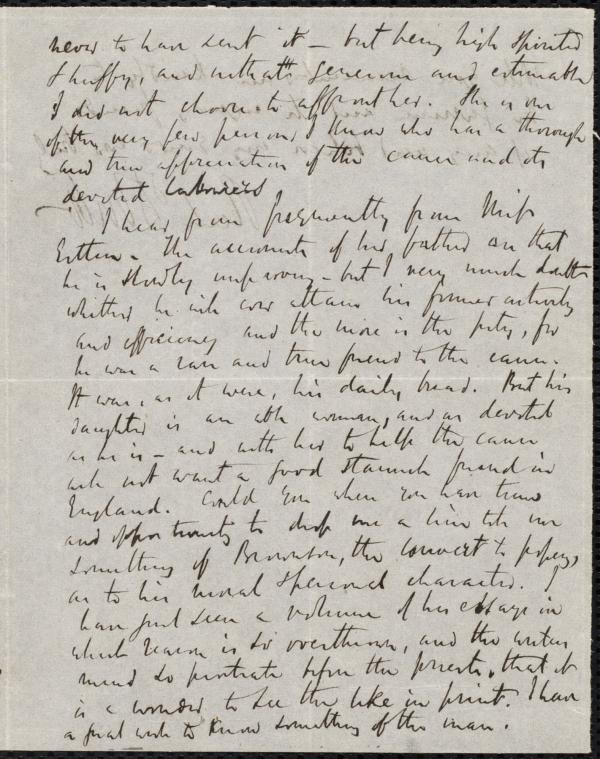 never to have sent it – but being high spirited
& huffy, and withal generous and estimable
I did not choose to affront her. She is one
of the very few persons I know who has a thorough
and true appreciation of the cause and its
devoted labourers
I hear from frequently from Miss
Estlin. The accounts of her father are that
he is slowly improving – but I very much doubt
whether he will ever attain his former activity
and efficiency and the more is the pity, for
he was a rare and true friend to the cause.
It was, as it were, his daily bread. But his
daughter is an able woman, and as devoted
as he is – and with her to help the cause
will not want a good staunch friend in
England. Could you when you have time
and opportunity to drop me a line tell me
something of Brownson, the convert to popery,
as to his moral & personal character. I
have just seen a volume of his essays in
which reason is so overthrown, and the writers
mind so prostrate before the priests, that it
is a wonder to see the like in print. I have
a great wish to know something of the man.